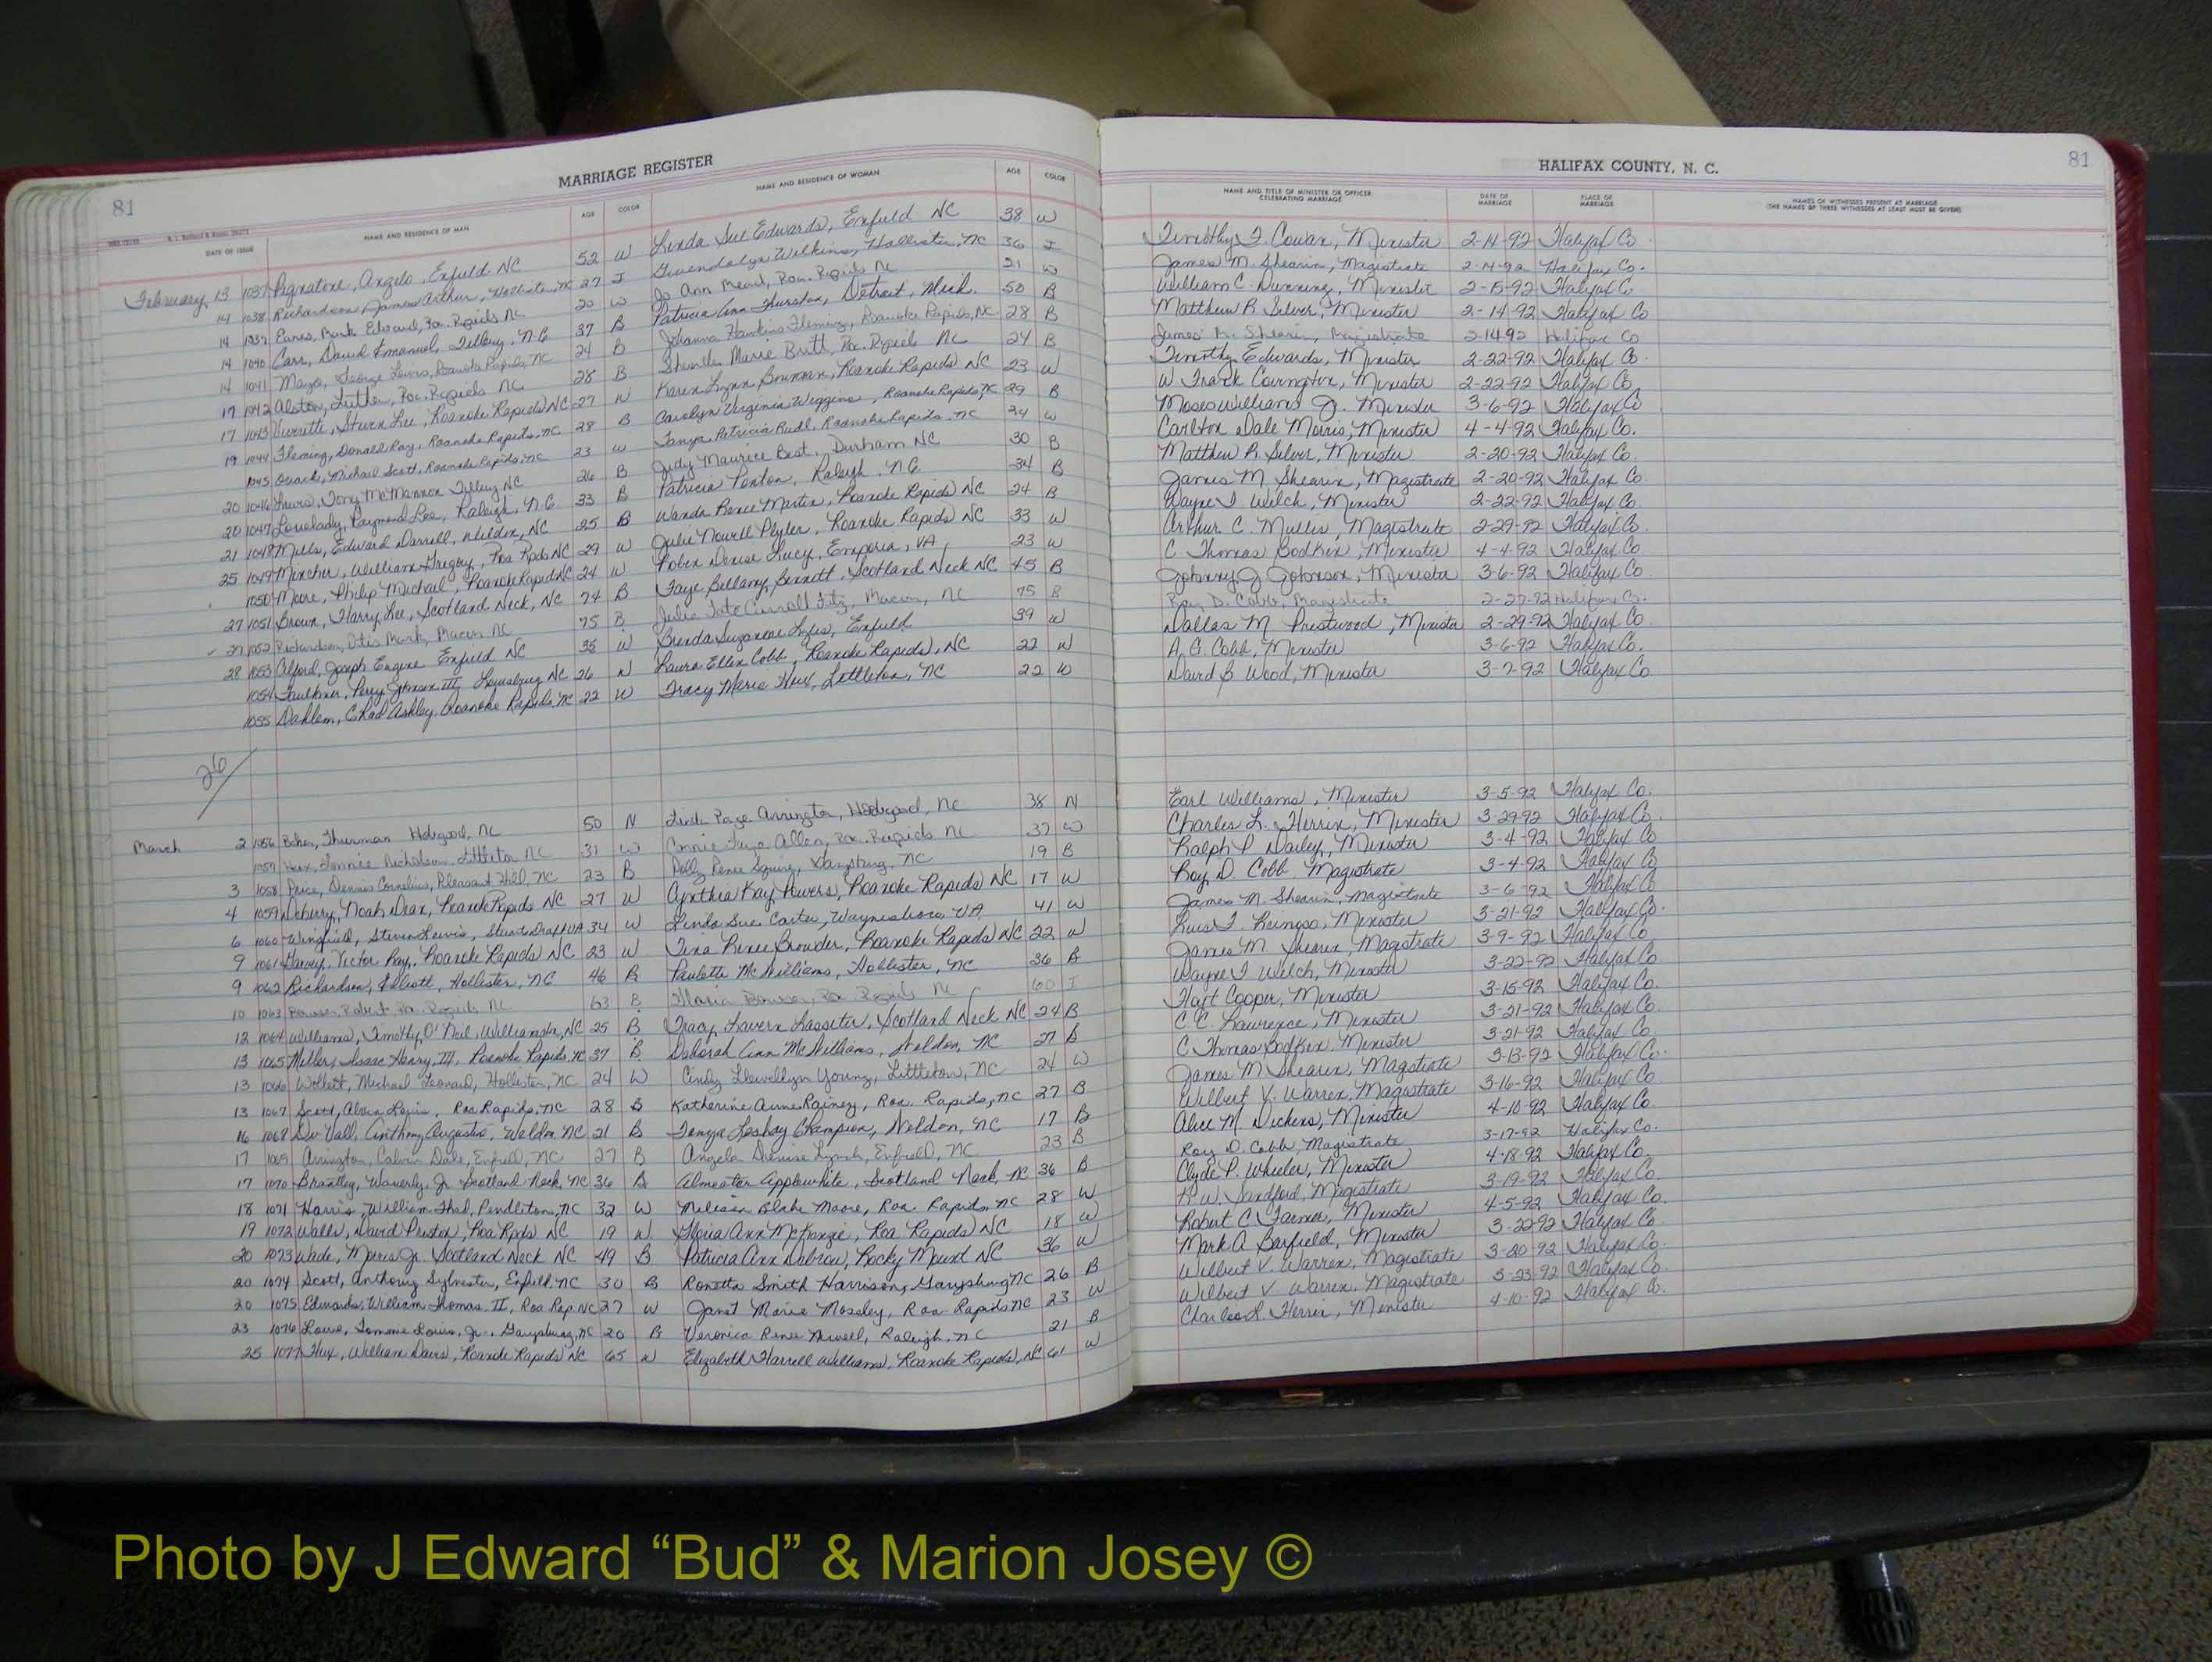 81
MARRIAGE REGISTER
DATE OF ISSUE NAME AND RESIDENCE OF MAN AGE COLOR NAME AND RESIDENCE OF WOMAN AGE COLOR
February 13 1037 Pignatone, Angelo, Enfield NC 52 W Linda Sue Edwards, Enfield NC 38 W
14 1038 Richardson, James Arthur, Hollister, NC 27 I Gwendolyn Wilkins, Hollister, NC 36 I
14 1039 Eanes, Mark Edward, Roa. Rapids NC 20 W Jo Ann Mead, Roa. Rapids NC 21 W
14 1040 Carr, David Emanuel, Tillery, N.C 37 B Patricia Ann Thurston, Detroit, Mich. 50 B
14 1041 Mayo, George Lewis, Roanoke Rapids, NC 24 B Johanna Hawkins Fleming, Roanoke Rapids, NC 28 B
17 1042 Alston, Luther, Roa. Rapids NC 28 B Marie Britt, Roa. Rapids NC 24 B
17 1043 Lee, Roanoke Rapids NC 27 W Karen Lynn Bowman, Roanoke Rapids NC 23 W
19 1044 Fleming, Donald Ray, Roanoke Rapids, NC 28 B Carolyn Virginia Wiggins, Roanoke Rapids, NC 29 B
1045 Michael Scott, Roanoke Rapids, NC 23 W Tanya Patricia Rudd, Roanoke Rapids, NC 24 W
20 1046 Lewis, Tony McMannon Tillery NC 26 B Judy Maurice Best, Durham NC 30 B
20 1047 Loveledy, Raymond Lee, Raleigh, N.C 33 B Patricia Ponton, Raleigh, N.C 34 B
21 1048 Mills, Edward Darrell, Weldon, NC 25 B Wanda Renee Martin, Roanoke Rapids NC 24 B
25 1049 Mincher, William Gregory, Roa Rpds NC 29 W Julie Nowell Plyler, Roanoke Rapids NC 33 W
1050 Moore, Philip Michael, Roanoke Rapids NC 24 W Robin Denise Lucy, Emporia, VA 23 W
27 1051 Brown, Harry Lee, Scotland Neck, NC 74 B Faye Bellamy Bennett, Scotland Neck NC 45 B
27 1052 Richardson, Otis Mark, Macon NC 75 B Julia Tate Carroll Fitz, Macon, NC 75 B
28 1053 Alford, Joseph Eugene Enfield NC 35 W Brenda Suzanne Lyles, Enfield 39 W
1054 Faulkner, Perry Johnson III, Louisburg NC 26 W Laura Ellen Cobb, Roanoke Rapids, NC 22 W
1055 Dahlem, Chad Ashley, Roanoke Rapids, NC 22 W Tracy Marie Hux, Littleton, NC 22 W
26
March 2 1056 Baker, Thurman Hobgood, NC 50 N Linda Page Arrington, Hobgood, NC 38 N
1057 Hux, Lonnie Nicholson, Littleton NC 31 W Connie Faye Allen, Roa. Rapids NC 37 W
3 1058 Price, Dennis Cornelius, Pleasant Hill, NC 23 B Polly Renee Squire, Garysburg, NC 19 B
4 1059 Deberry, Noah Dean, Roanoke Rapids NC 27 W Cynthia Kay Powers, Roanoke Rapids NC 17 W
6 1060 Wingfield, Steven Lewis, Stuarts Draft VA 34 W Linda Sue Carter, Waynesboro VA 41 W
9 1061 Garvey, Victor Ray, Roanoke Rapids NC 23 W Tina Renee Browder, Roanoke Rapids NC 22 W
9 1062 Richardson, Elliott, Hollister, NC 46 B Paulette McWilliams, Hollister, NC 36 B
10 1063 Robert Roa. Rapids, NC 63 B Gloria Roa Rapids NC 60 I
12 1064 Williams, Timothy O'Neil, Williamston, NC 25 B Tracy Lavern Lassiter, Scotland Neck NC 24 B
13 1065 Miller, Isaac Henry, III, Roanoke Rapids, NC 37 B Deborah Ann McWilliams, Weldon, NC 27 B
13 1066 Wollett, Michael Leonard, Hollister, NC 24 W Cindy Llewellyn Young, Littleton, NC 24 W
13 1067 Scott, Alvin Louis, Roa Rapids, NC 28 B Katherine Anne Rainey, Roa. Rapids, NC 27 B
16 1068 DuVall, Anthony Augustus, Weldon, NC 21 B Tonya Leshay Champion, Weldon, NC 17 B
17 1069 Arrington, Calvin Dale, Enfield, NC 27 B Angela Denise Lynch, Enfield, NC 23 B
17 1070 Brantley, Waverly, Jr Scotland Neck, NC 36 B Almester Applewhite, Scotland Neck, NC 36 B
18 1071 Harris, William Thad, Pendleton, NC 32 W Melissa Blake Moore, Roa. Rapids, NC 28 W
19 1072 Walls, David Preston, Roa Rpds NC 19 W Gloria Ann McKenzie, Roa Rapids NC 18 W
20 1073 Wade, Morris Jr. Scotland Neck NC 49 B Patricia Ann Debrew, Rocky Mount NC 36 W
20 1074 Scott, Anthony Sylvester, Enfield, NC 30 B Ronetta Smith Harrison, Garysburg NC 26 B
20 1075 Edwards, William Thomas, II, Roa Rap NC 27 W Janet Marie Moseley, Roa. Rapids NC 23 W
23 1076 Lowe, Tommie Louis, Jr., Garysburg, NC 20 B Veronica Renee Newell, Raleigh, NC 21 B
25 1077 Hux, William Davis, Roanoke Rapids NC 65 W Elizabeth Harrell Williams, Roanoke Rapids, NC 61 W
HALIFAX COUNTY, N. C.
81
NAME AND TITLE OF MINISTER OR OFFICER CELEBRATING MARRIAGE DATE OF MARRIAGE PLACE OF MARRIAGE NAMES OF WITNESSES PRESENT AT MARRIAGE (THE NAMES OF THREE WITNESSES AT LEAST MUST BE GIVEN)
Timothy F. Cowan, Minister 2-14-92 Halifax Co
James M. Shearin, Magistrate 2-14-92 Halifax Co.
William C. Dunning, Minister 2-15-92 Halifax C
Matthew R Silver, Minister 2-14-92 Halifax Co
James M. Shearin, Magistrate 2-14-92 Halifax Co
Timothy Edwards, Minister 2-22-92 Halifax Co.
W Frank Covington, Minister 2-22-92 Halifax Co
Moses Williams Jr. Minister 3-6-92 Halifax Co
Carlton Dale Morris, Minister 4-4-92 Halifax Co.
Matthew R. Silver, Minister 2-20-92 Halifax Co.
James M. Shearin, Magistrate 2-20-92 Halifax Co.
Wayne T. Welch, Minister 2-22-92 Halifax Co.
Arthur C. Mullis, Magistrate 2-29-92 Halifax Co.
C. Thomas Bodkin, Minister 4-4-92 Halifax Co
Johnny J Johnson, Minister 3-6-92 Halifax Co
Roy D. Cobb, Magistrate 2-27-92 Halifax Co.
Dallas M Prestwood, Minister 2-29-92 Halifax Co
A. G. Cobb, Minister 3-6-92 Halifax Co.
David B. Wood, Minister 3-7-92 Halifax Co
Earl Williams, Minister 3-5-92 Halifax Co.
Charles L. Herrin, Minister 3-29-92 Halifax Co.
Ralph P. Dailey, Minister 3-4-92 Halifax Co
Roy D. Cobb Magistrate 3-4-92 Halifax Co
James M. Shearin, Magistrate 3-6-92 Halifax Co
Luis F. Reinoso, Minister 3-21-92 Halifax Co.
James M. Shearin, Magistrate 3-9-92 Halifax Co
Wayne T Welch, Minister 3-22-92 Halifax Co.
Hart Cooper, Minister 3-15-92 Halifax Co.
C. C. Lawrence, Minister 3-21-92 Halifax Co.
C Thomas Bodkin, Minister 3-21-92 Halifax Co
James M Shearin, Magistrate 3-13-92 Halifax Co.
Wilbert V. Warren, Magistrate 3-16-92 Halifax Co
Alice M. Dickens, Minister 4-10-92 Halifax Co.
Roy D. Cobb, Magistrate 3-17-92 Halifax Co.
Clyde P. Wheeler, Minister 4-18-92 Halifax Co.
W. Sandford, Magistrate 3-19-92 Halifax Co.
Robert C. Farmer, Minister 4-5-92 Halifax Co.
Mark A Barfield, Minister 3-22-92 Halifax Co
Wilbert V. Warren, Magistrate 3-20-92 Halifax Co.
Wilbert V Warren, Magistrate 3-23-92 Halifax Co.
Charles L. Herrin, Minister 4-10-92 Halifax Co.
Photo by J Edward “Bud” & Marion Josey ©